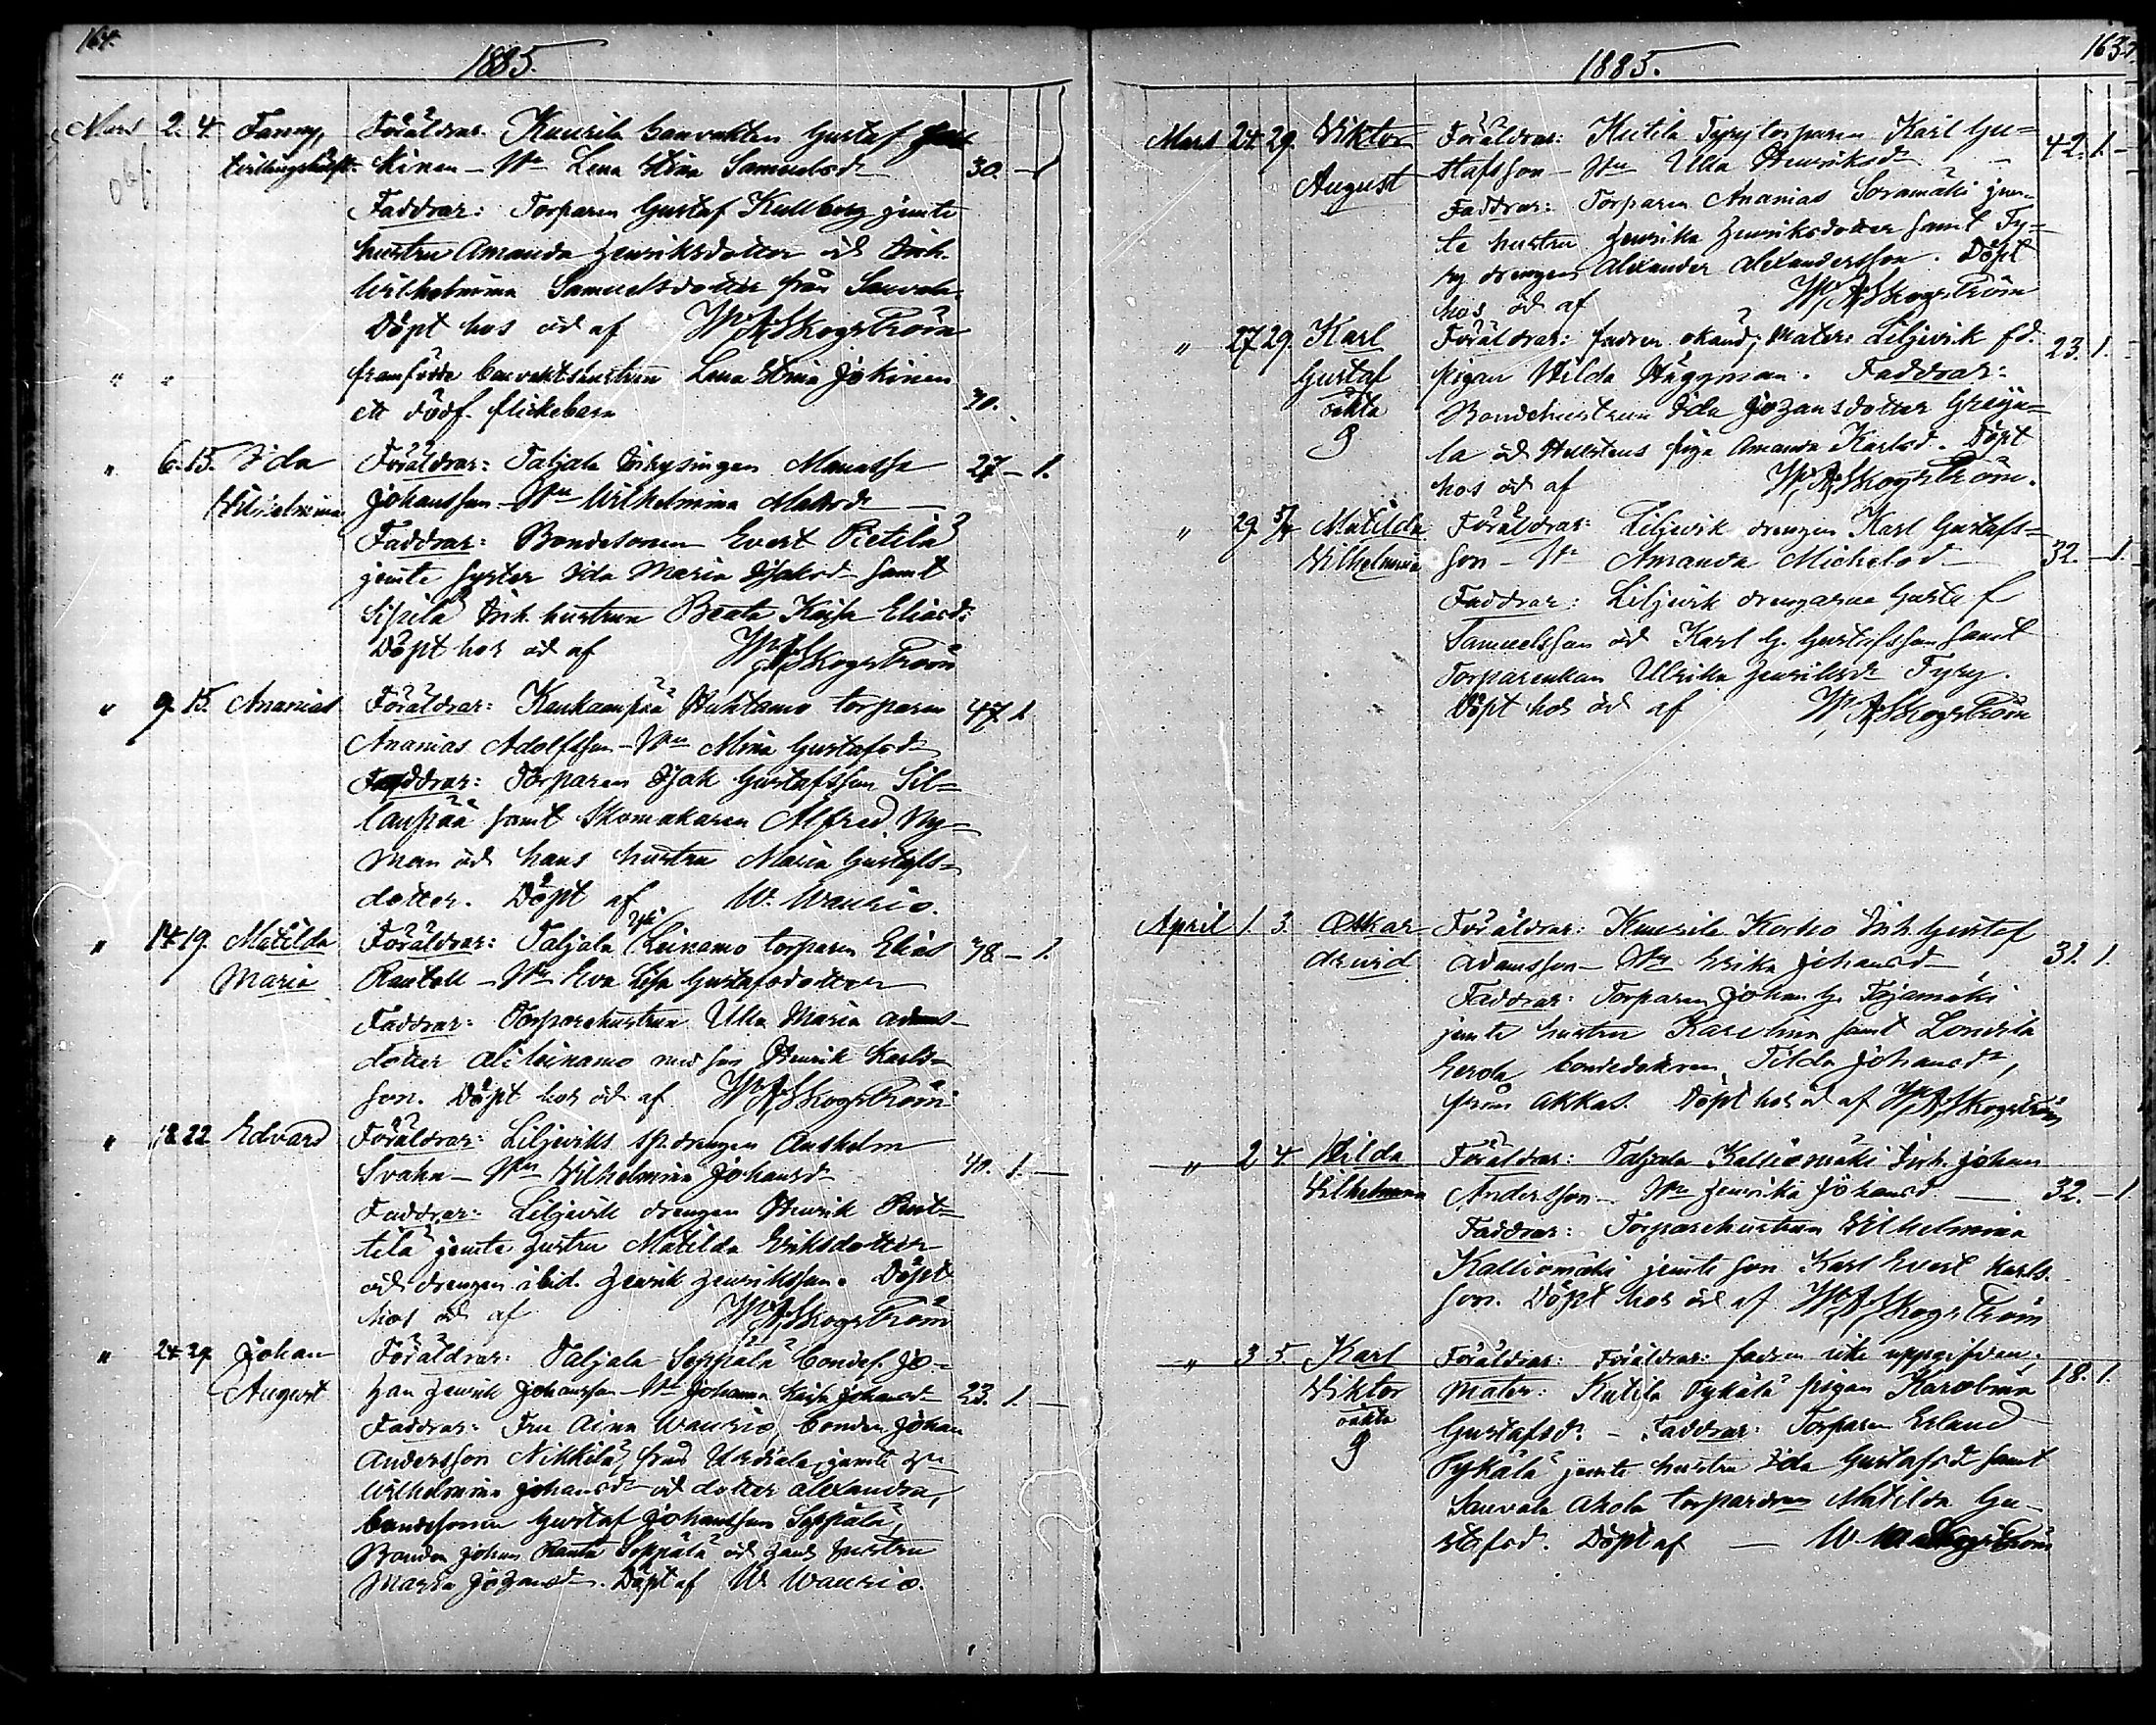 164.
1885.
Mars 2. 4. Fanny, Föräldrar. Kuurila banvakten Gustaf
tvillingsküft. kinen - Hu Lena Stina Samuelsdr 30. - 1
Faddrar: Torparen Gustaf Kullberg jemte
hustru Amanda Henriksdotter och Inh.
Wilhelmina Samuelsdotter från Sauvala.
Döpt hos och af W. A. Skogström
" " framfödde banvaktshustrun Lena Stina Jokinen
ett dödf. flickebarn 30.
" 6. 15. Ida Föräldrar: Taljala Inhysingen Manasse 27 - 1.
Vilhelmina Johansson - Hu Wilhelmina Matsdr -
Faddrar: Bondesonen Evert Pietilä
jemte syster Ida Maria Isaksdr samt
Sipilä Inh. hustrun Beata Kajsa Eliasdr.
Döpt hos och af W. A. Skogström
" 9. 15. Ananias Föräldrar: Kankaanpää Huhtamo torparen 47. 1
Ananias Adolfsson - Hu Mina Gustafsdr
Faddrar: Torparen Isak Gustafsson Sil-
lanpää samt Skomakaren Alfred Ny-
man och hans hustru Maria Gustafs-
dotter. Döpt af W. Waurio.
" 14. 19. Matilda Föräldrar: Taljala Yli Leinamo torparen Elias 38 - 1.
Maria Rautell - Hu Eva Lisa Gustafsdotter
Faddrar: Torparehustrun Ulla Maria Adams-
dotter Alileinamo med son Henrik Karls-
son. Döpt hos och af W. A. Skogström
" 18. 22 Edvard Föräldrar: Liljeviks sp. drengen Anshelm
Svahn - Hu Vilhelmina Johansdr 40. 1. -
Faddrar: Liljevik drengen Henrik Rint-
tilä jemte hustru Matilda Eriksdotter
och drengen ibid. Henrik Henriksson. Döpt
hos och af W. A. Skogström
" 24 29 Johan Föräldrar: Taljala Seppälä bondes. Jo-
August han Henrik Johansson - Hu Johanna Kajsa Johansdr 23. 1. -
Faddrar: Fru Aina Waurio, bonden Johan
Andersson Nikkilä från Urdiala, jemte hu
Wilhelmina Johansdr och dotter Alexandra,
bondesonen Gustaf Johansson Seppälä,
Bonden Johan Ranta Seppälä och hans hustru
Maria Johansdr. Döpt af W. Waurio.
163.
1885.
Mars 24. 29. Viktor Föräldrar: Kutila Tyry torparen Karl Gu-
August stafsson - Hu Ulla Henriksdr - 42. 1. -
Faddrar: Torparen Ananias Soramäki jem-
te hustru Henrika Henriksdotter samt Ty-
ry drengen Alexander Alexandersson. Döpt
hos och af W. A. Skogström
" 27 29. Karl Föräldrar: fadren okänd; Mater: Liljevik fd. 23. 1.
Gustaf pigan Hilda Häggman. Faddrar:
oäkta Bondehustrun Ida Johansdotter Greju-
la och Hellstens piga Amanda Karlsd. Döpt
hos och af W. A. Skogström.
" 29. 5/4 Matilda Föräldrar: Liljevik drengen Karl Gustafs-
Vilhelmina son - Hu Amanda Michelsd. - 32. - 1.
Faddrar: Liljevik drengarne Gustaf
Samuelsson och Karl G. Gustafsson samt
Torparenkan Ulrika Henriksdr Tyry.
Döpt hos och af W. A. Skogström
April 1. 3. Oskar Föräldrar: Kuurila Korho Inh. Gustaf
Arvid Adamsson - Hu Erika Johansdr - 31. 1.
Faddrar: Torparen Johan G. Tojamäki
jemte hustru Karolina samt Lontila
Eerola bondedottren Tilda Johansdr,
från Akkas. Döpt hos och af W. A. Skogström
" 2 4. Hilda Föräldrar: Taljala Kalliomäki Inh. Johan
Vilhelmina Andersson - Hu Henrika Johansd. - 32. - 1.
Faddrar: Torparehustrun Vilhelmina
Kalliomäki jemte son Karl Evert Karls-
son. Döpt hos och af W. A. Skogström
" 3 5. Karl Föräldrar: Föräldrar: fadren icke uppgifven; 18. 1.
Viktor Mater: Kutila Pykälä pigan Karolina
oäkta Gustafsd. - Faddrar: Torparen Erland
Pykälä jemte hustru Ida Gustafsd samt
Sauvala Ahola torpardren Matilda Gu-
stafsd. Döpt af - W. Skogström